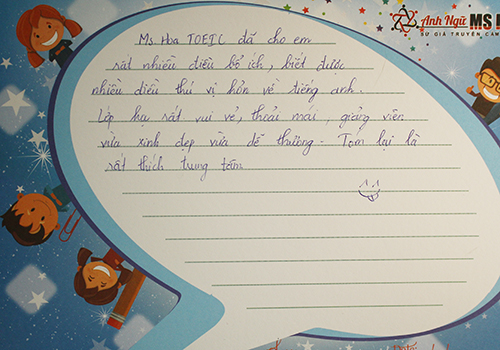 Anh Ngữ MS
SỨ GIẢ TRUYỀN CẢM
Ms. Hoa TOEIC đã cho em
rất nhiều điều bổ ích, biết được
nhiều điều thú vị hơn về tiếng anh.
Lớp học rất vui vẻ, thoải mái, giảng viên
vừa xinh đẹp vừa dễ thương. Tóm lại là
rất thích trung tâm